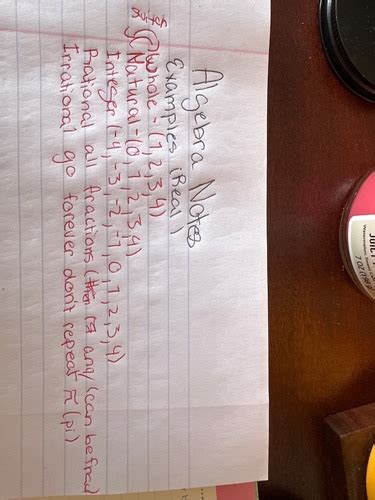 Algebra Notes
Examples (Real)
Whole - (1, 2, 3, 4)
Natural - (0, 1, 2, 3, 4)
Integer (-4, -3, -2, -1, 0, 1, 2, 3, 4)
Rational all fractions ( any (can be frac
Irrational go forever don't repeat π (pi)
JUICY
7 OZ (198